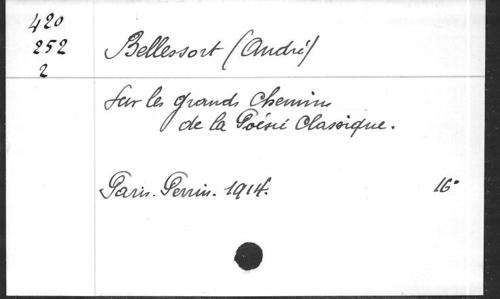 420
252
2
Bellessort (André)
Sur les grands Chemins
de la Poésie Classique.
Paris. Perrin. 1914. 16°